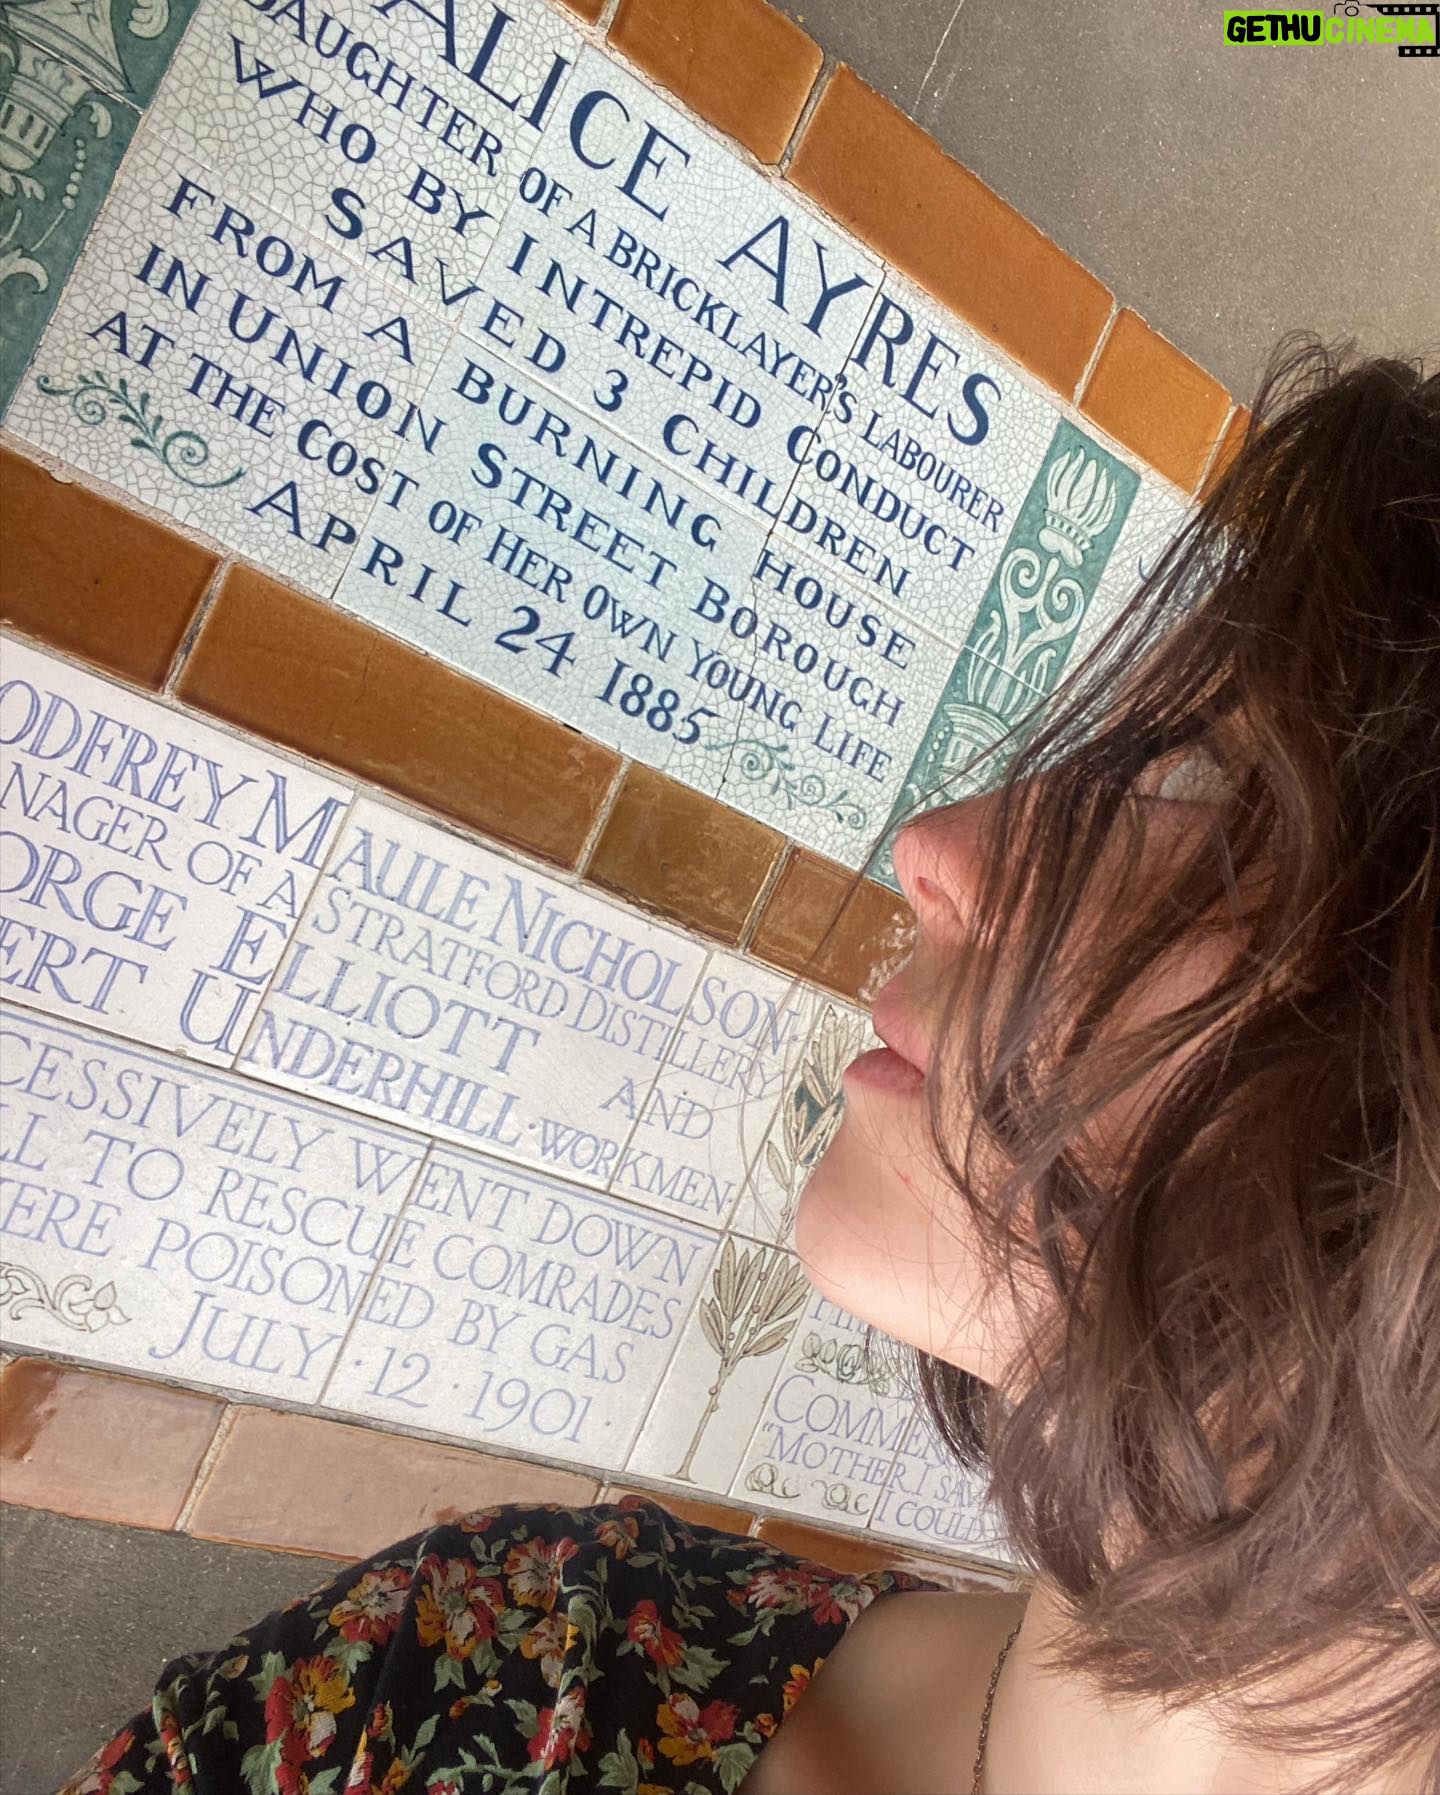 GETHU CINEMA
ALICE AYRES
DAUGHTER OF A BRICKLAYER'S LABOURER
WHO BY INTREPID CONDUCT
SAVED 3 CHILDREN
FROM A BURNING HOUSE
IN UNION STREET BOROUGH
AT THE COST OF HER OWN YOUNG LIFE
APRIL 24 1885
ODFREY MAULE NICHOLSON
NAGER OF A STRATFORD DISTILLERY
ORGE ELLIOTT AND
ERT UNDERHILL WORKMEN
CESSIVELY WENT DOWN
LL TO RESCUE COMRADES
ERE POISONED BY GAS
JULY · 12 · 1901
COMMER
"MOTHER I SAV
I COULD